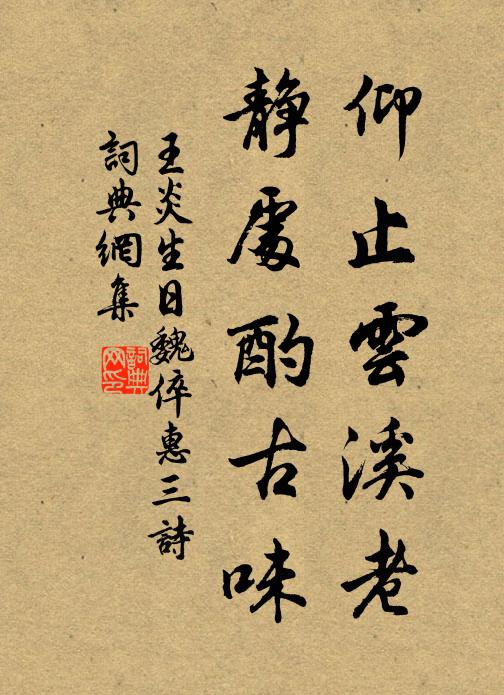 仰止雲溪老
靜處酌古味
王炎生日魏倅惠三詩
詞典網集
詞典网印